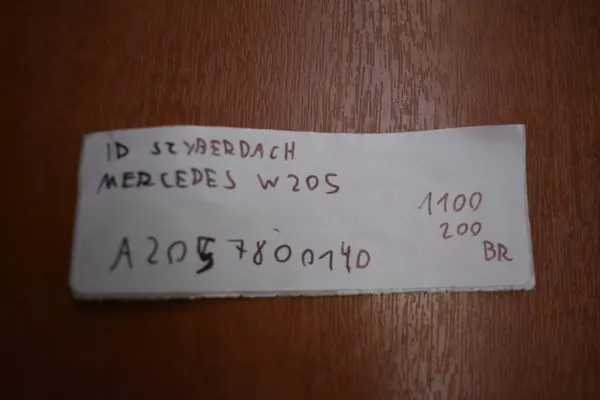 ID SZYBERDACH
MERCEDES W205
A2057800140
1100
200
BR